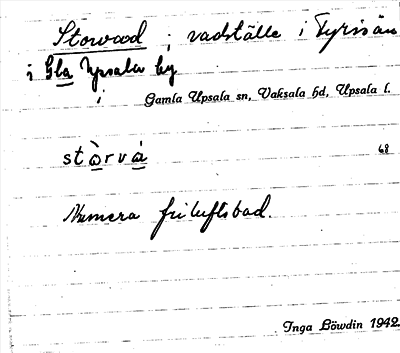 Storvad ; vadställe i Fyrisån
i Gla Upsala by
i
Gamla Upsala sn, Vaksala hd, Upsala l.
stòrvá 68
Numera friluftsbad.
Inga Löwdin 1942.